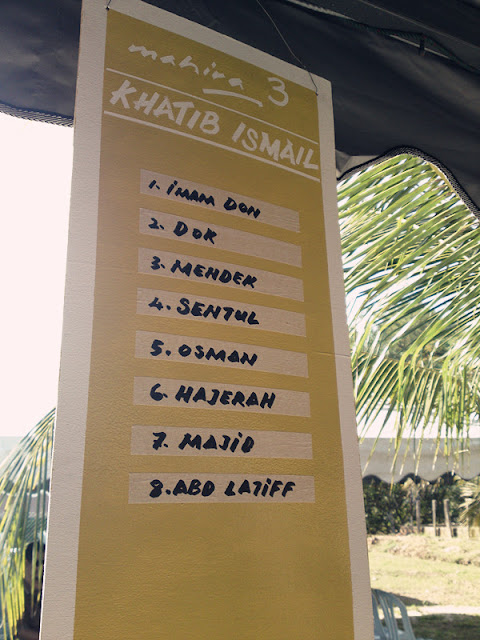 mahira 3
KHATIB ISMAIL
1. IMAM DON
2. DOK
3. MENDEK
4. SENTUL
5. OSMAN
6. HAJERAH
7. MAJID
8. ABD LATIFF